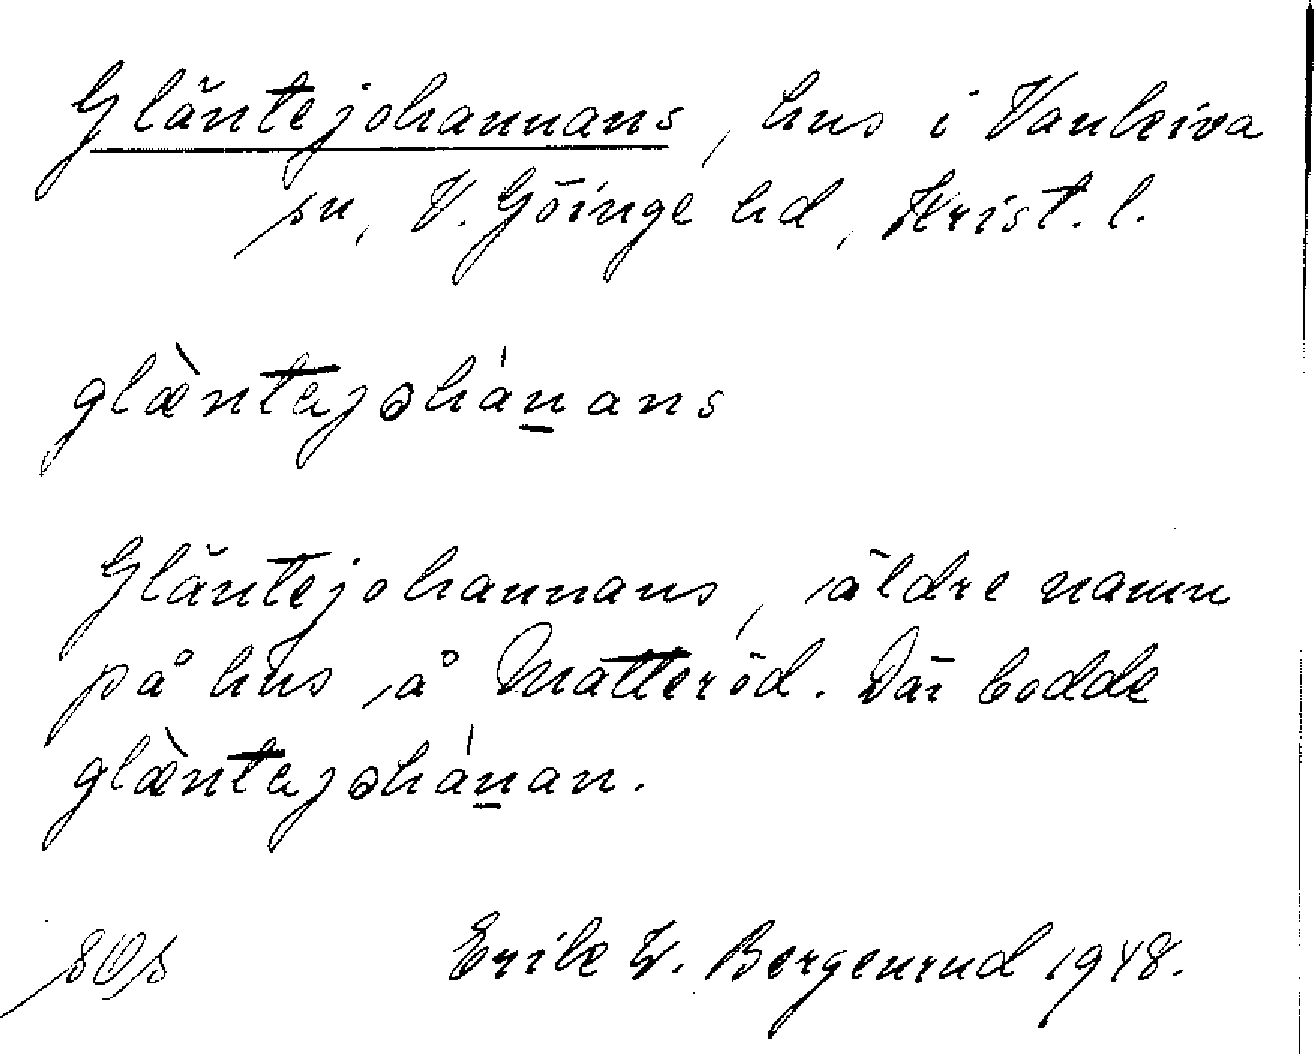 Gläntejohannans, hus i Vankiva
sn, V. Göinge hd, Krist. l.
glæ̀ntajohánans
Gläntejohannans, äldre namn
på hus å Matteröd. Där bodde
glæ̀ntajohánan.
Erik W. Bergenrud 1948.